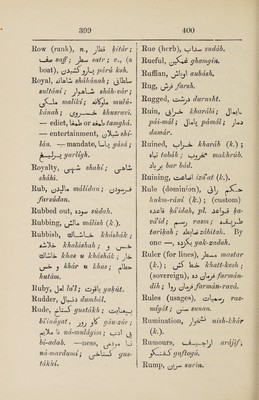 399
400
Row (rank), n., قطار hitár;
صف saff; سطر satr; v., (a
boat), پارو کش párú kash.
Royal, شاهانه sháhánah; سلطانی
sultáni; شاهوار sháh-vár;
ملکی maliki; ملوکانه mulú-
kánah; خسروی khusraví.
— edict, طغرا or تمغا tamghá.
— entertainment, شیلان shí-
lán. — mandate, یاسا yásá;
یرلیغ yarlígh.
Royalty, شاهی sháhi;
sháhi.
Rub, مالیدن málídan; فرسودن
farsúdan.
Rubbed out, سوده súdah.
Rubbing, مالش málish (k.).
Rubbish, خاشاک kháshák;
خلاشه khaláshah; خس و
خاشاک khas u kháshák; خار
و خس khár u khas; حطام
hutám.
Ruby, لعل la'l; یاقوت yakút.
Rudder, دنبال dumbál.
Rude, گستاخ gustákh; بی‌عنایت
bí'ináyat, گاو زور gáu-zúr;
نا ملایم ná-mulágim; بی ادب
bí-adab. —ness, نا مردمی
ná-mardumí; گستاخی gus-
tákhí.
Rue (herb), سداب sudáb.
Rueful, غمگین ghamgín.
Ruffian, اوباش aubásh.
Rug, فرش farsh.
Rugged, درشت durusht.
Ruin, خرابی kharábí; پایمال
pái-mál; پامال pámál; دمار
damár.
Ruined, خراب kharáb (k.);
تباه tabáh; مخروب makhrúb.
بر باد bar bád.
Ruining, اضاعت izá'at (k.).
Rule (dominion), حکم رانی
hukm-rání (k.); (custom)
قاعده ḳá'idah, pl. قواعد ḳa-
vá'id; رسم rasm; طریقه
taríkah; ضابطه zábitah. By
one —, یکزده yak-zadah.
Ruler (for lines), مسطر mastar
(k.); خط کش khatt-kesh;
(sovereign), فرمان ده farmán-
dih; فرمان روا farmán-ravá.
Rules (usages), رسمیات ras-
míyát; سنن sunan.
Rumination, نشخوار nish-khár
(k.).
Rumours, اراجیف arájíf,
گفتگو guftogú.
Rump, سرین surín.